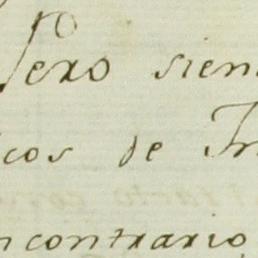 Pero sien
cos de In
ncontrario,